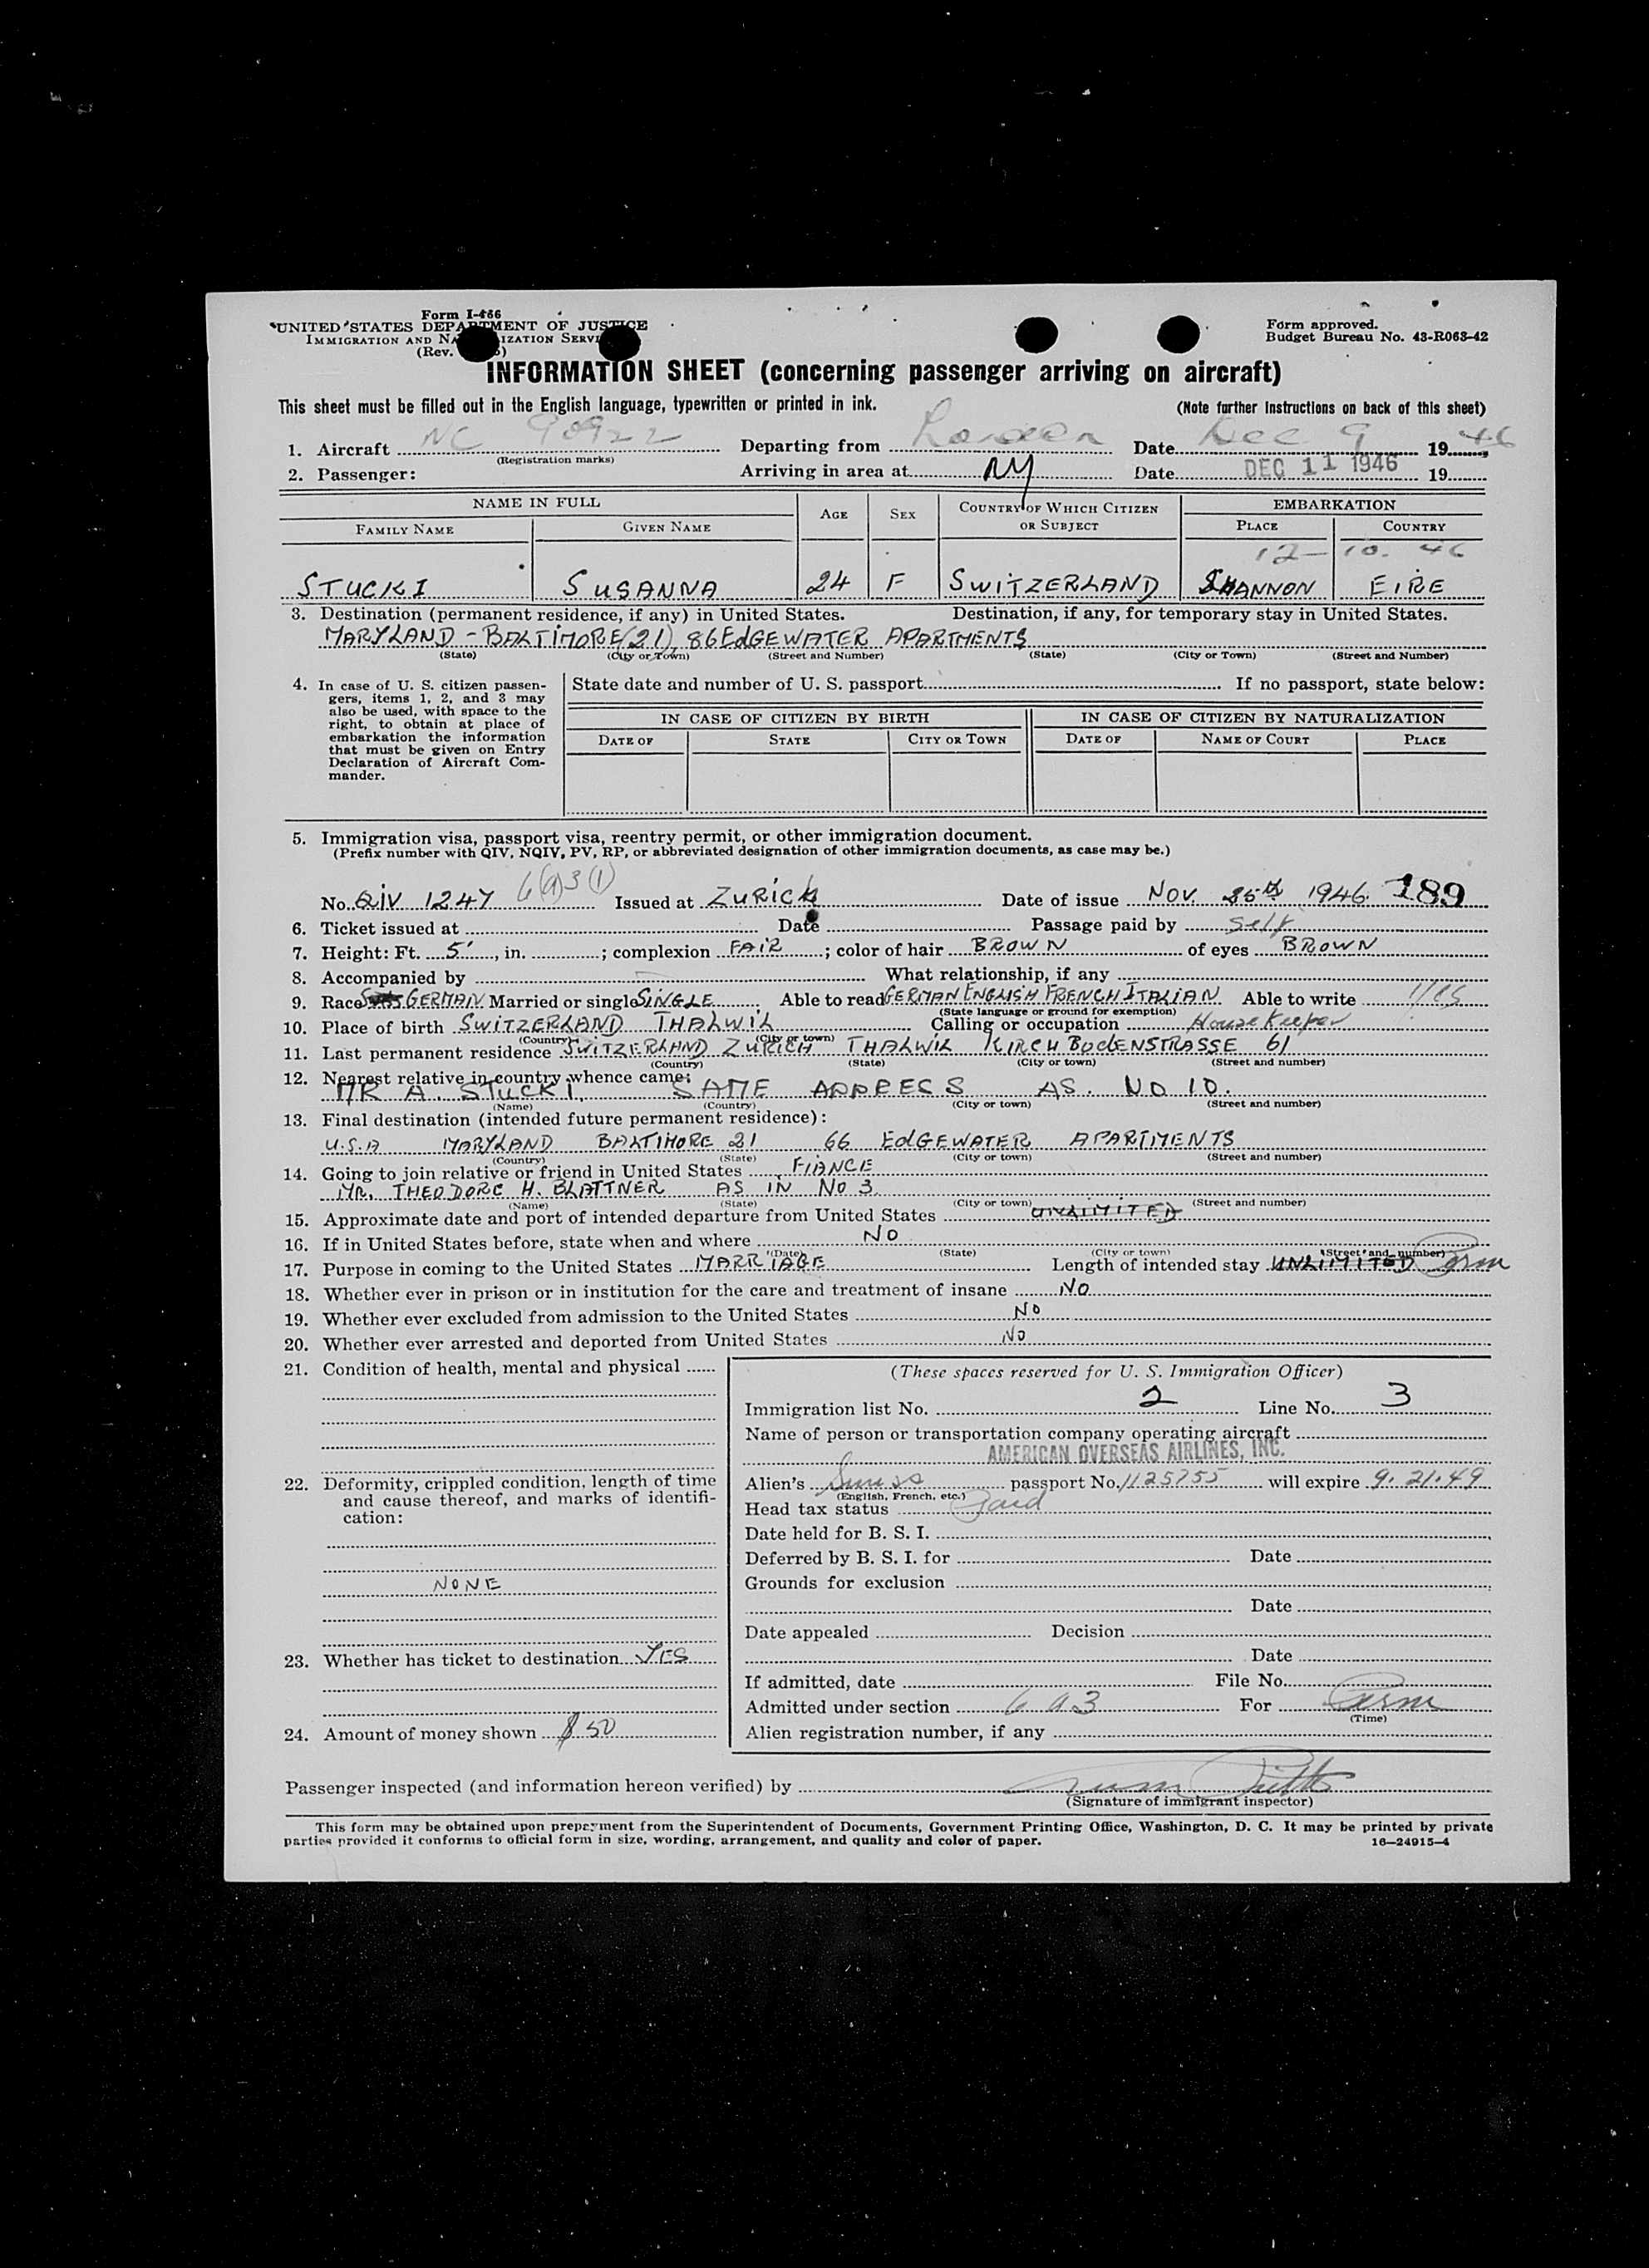 Form I-466
UNITED STATES DEPARTMENT OF JUSTICE
IMMIGRATION AND NATURALIZATION SERVICE
(Rev.
Form approved.
Budget Bureau No. 43-R063-42
INFORMATION SHEET (concerning passenger arriving on aircraft)
This sheet must be filled out in the English language, typewritten or printed in ink. (Note further instructions on back of this sheet)
1. Aircraft NC 90922 Departing from London Date Dec 9 1946
(Registration marks)
2. Passenger: Arriving in area at NY Date DEC 11 1946 19
NAME IN FULL AGE SEX COUNTRY OF WHICH CITIZEN OR SUBJECT EMBARKATION
FAMILY NAME GIVEN NAME PLACE COUNTRY
12-10. 46
STUCKI SUSANNA 24 F SWITZERLAND SHANNON EIRE
3. Destination (permanent residence, if any) in United States. Destination, if any, for temporary stay in United States.
MARYLAND - BALTIMORE (21), 86 EdGEWATER APARTMENTS
(State) (City or Town) (Street and Number) (State) (City or Town) (Street and Number)
4. In case of U. S. citizen passengers, items 1, 2, and 3 may also be used, with space to the right, to obtain at place of embarkation the information that must be given on Entry Declaration of Aircraft Commander.
State date and number of U. S. passport If no passport, state below:
IN CASE OF CITIZEN BY BIRTH IN CASE OF CITIZEN BY NATURALIZATION
DATE OF STATE CITY OR TOWN DATE OF NAME OF COURT PLACE
5. Immigration visa, passport visa, reentry permit, or other immigration document.
(Prefix number with QIV, NQIV, PV, RP, or abbreviated designation of other immigration documents, as case may be.)
No. QiV 1247 6(a)3(1) Issued at ZURICH Date of issue NOV. 25th 1946 189
6. Ticket issued at Date Passage paid by Self
7. Height: Ft. 5', in. ; complexion FAIR ; color of hair BROWN of eyes BROWN
8. Accompanied by What relationship, if any
9. Race GERMAN Married or single SINGLE Able to read GERMAN ENGLISH FRENCH ITALIAN Able to write Yes
(State language or ground for exemption)
10. Place of birth SWITZERLAND THALWIL Calling or occupation HouseKeeper
(Country) (City or town)
11. Last permanent residence SWITZERLAND ZURICH THALWIL KIRCH BOdENSTRASSE 61
(Country) (State) (City or town) (Street and number)
12. Nearest relative in country whence came:
MR A. STUCKI, SAME ADDRESS AS. NO 10.
(Name) (Country) (City or town) (Street and number)
13. Final destination (intended future permanent residence):
U.S.A MARYLAND BALTIMORE 21 66 EdGEWATER APARTMENTS
(Country) (State) (City or town) (Street and number)
14. Going to join relative or friend in United States FIANCE
MR. THEODORE H. BLATTNER AS IN NO 3.
(Name) (State) (City or town) (Street and number)
15. Approximate date and port of intended departure from United States UNLIMITED
16. If in United States before, state when and where NO
(Date) (State) (City or town) (Street and number)
17. Purpose in coming to the United States MARRIAGE Length of intended stay UNLIMITED Perm
18. Whether ever in prison or in institution for the care and treatment of insane NO
19. Whether ever excluded from admission to the United States NO
20. Whether ever arrested and deported from United States NO
21. Condition of health, mental and physical
22. Deformity, crippled condition, length of time and cause thereof, and marks of identification:
NONE
23. Whether has ticket to destination YES
24. Amount of money shown $50
(These spaces reserved for U. S. Immigration Officer)
Immigration list No. 2 Line No. 3
Name of person or transportation company operating aircraft
AMERICAN OVERSEAS AIRLINES, INC.
Alien's Swiss passport No. 1125755 will expire 9.21.49
(English, French, etc.)
Head tax status Paid
Date held for B. S. I.
Deferred by B. S. I. for Date
Grounds for exclusion
Date
Date appealed Decision
Date
If admitted, date File No.
Admitted under section 6 a 3 For Perm
(Time)
Alien registration number, if any
Passenger inspected (and information hereon verified) by
(Signature of immigrant inspector)
This form may be obtained upon prepayment from the Superintendent of Documents, Government Printing Office, Washington, D. C. It may be printed by private
parties provided it conforms to official form in size, wording, arrangement, and quality and color of paper. 16—24915-4